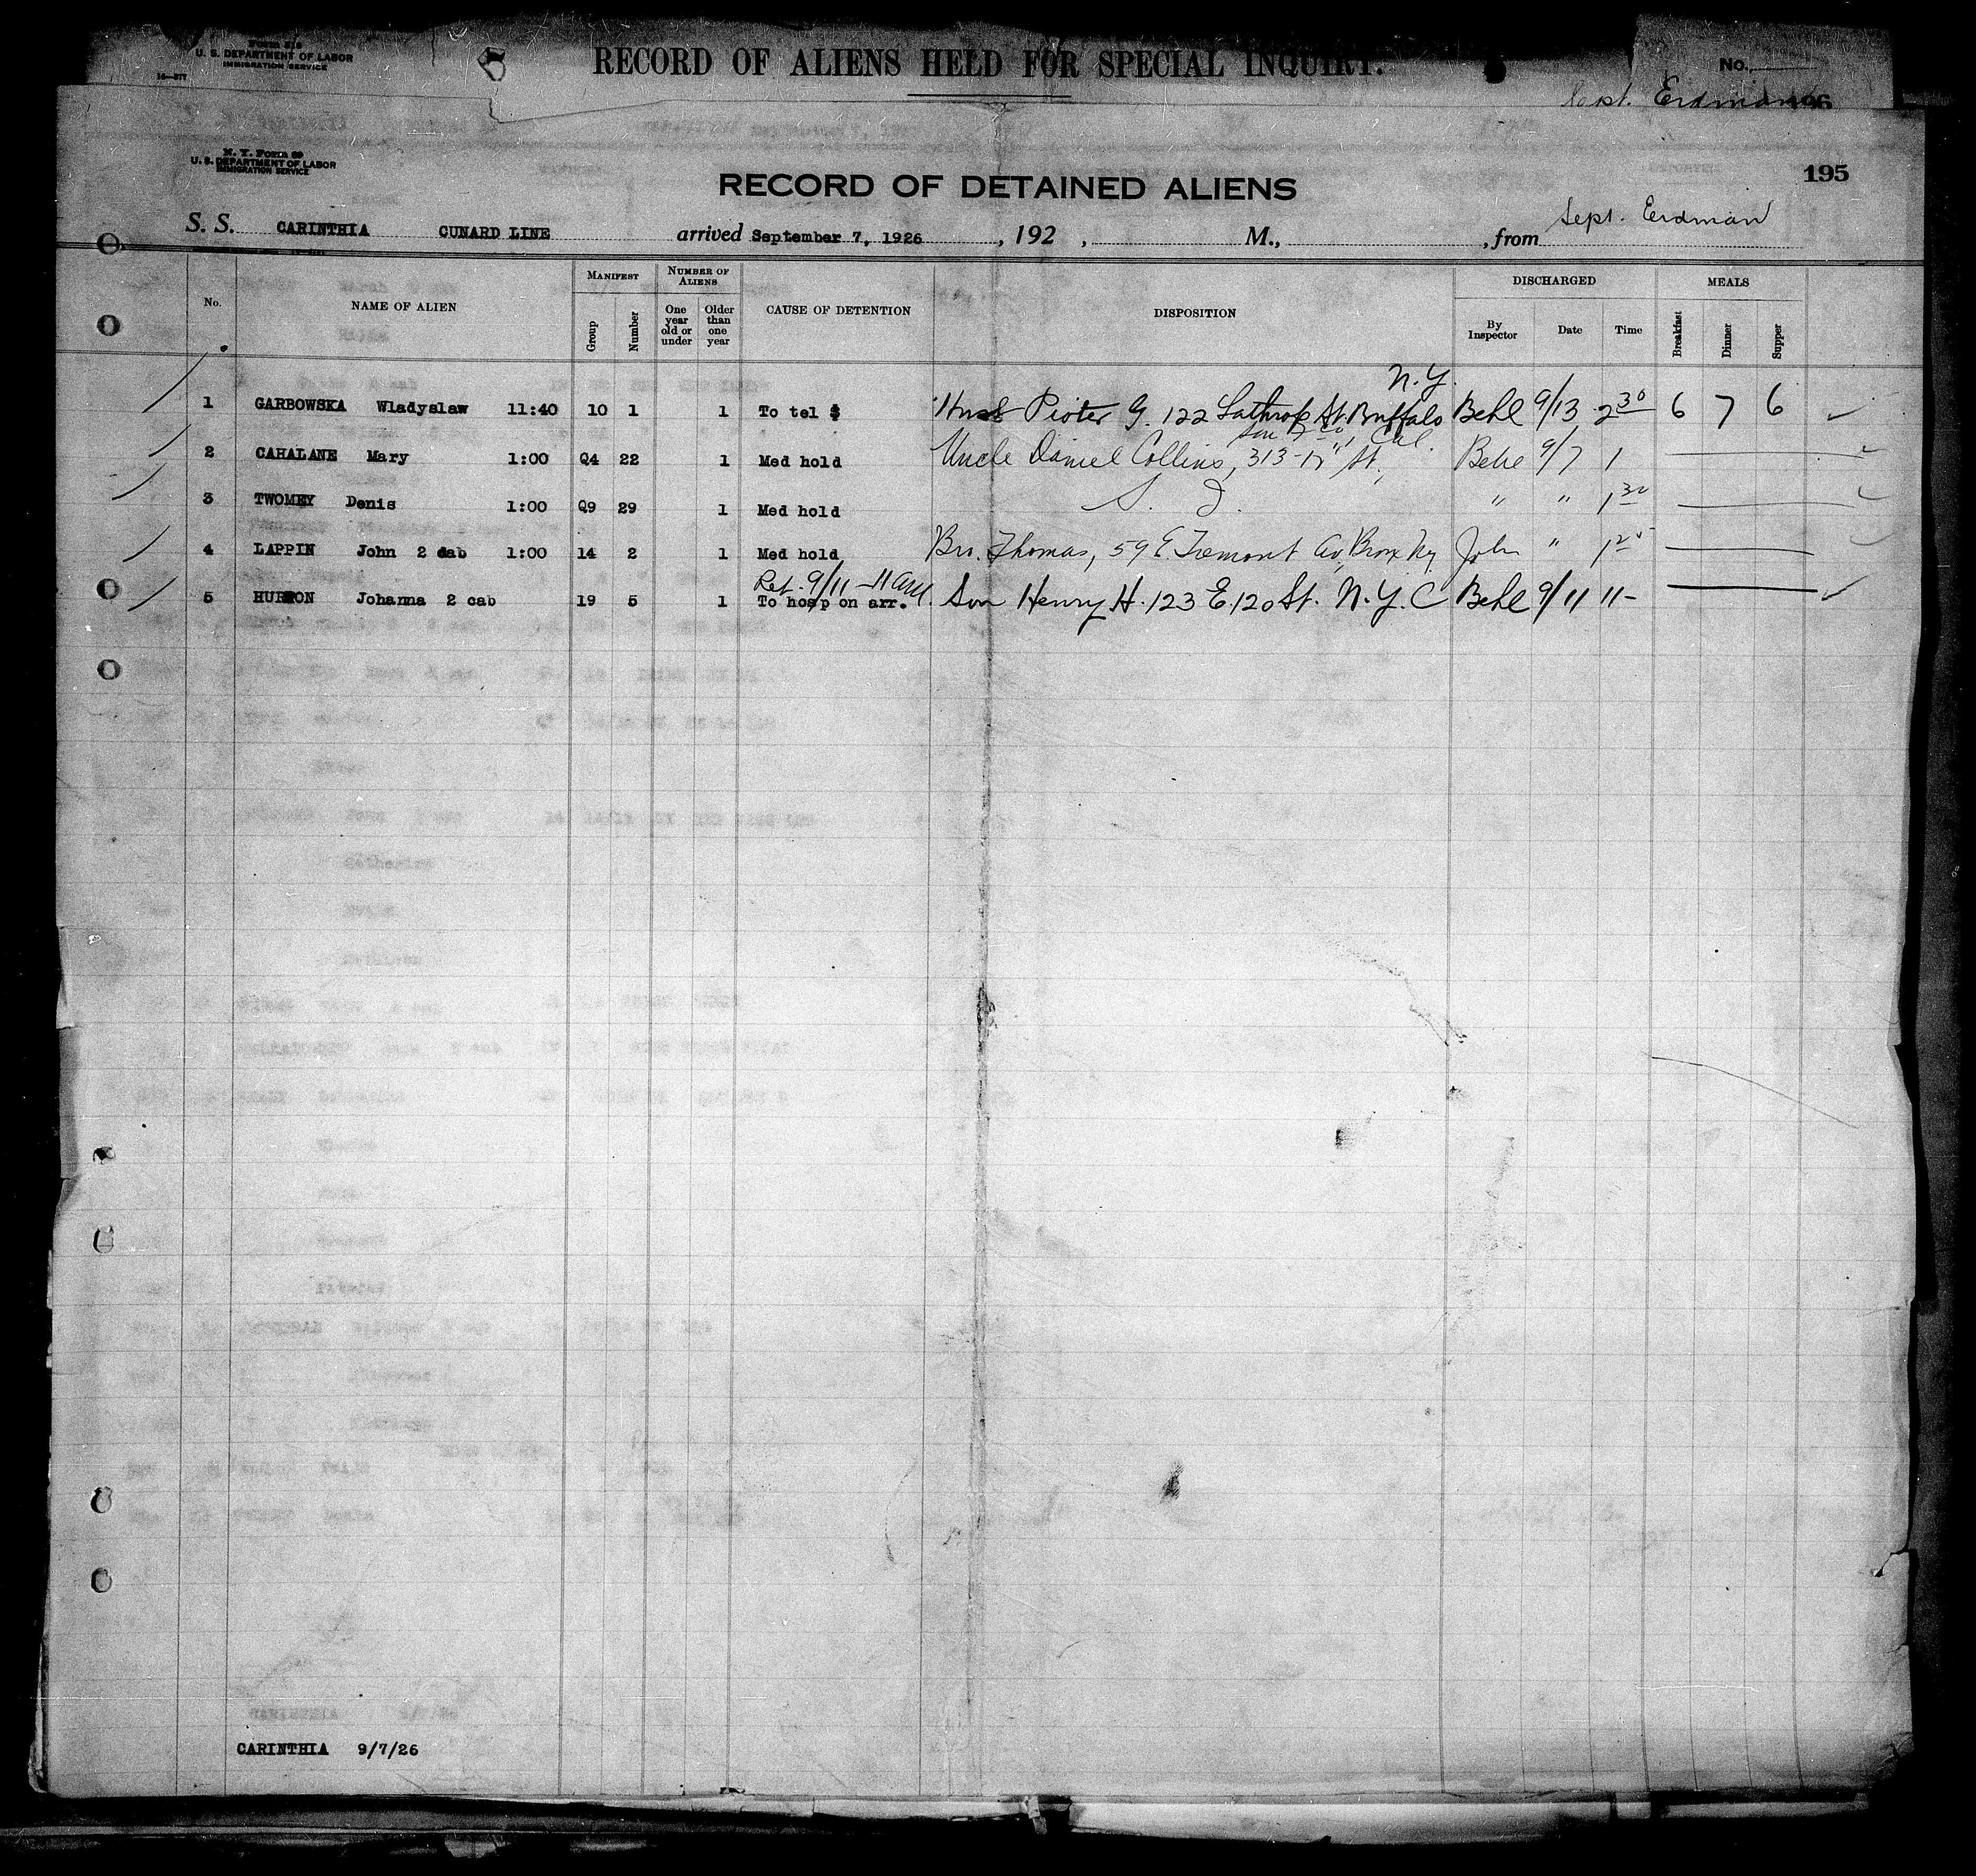 U. S. DEPARTMENT OF LABOR
IMMIGRATION SERVICE
14—577
RECORD OF ALIENS HELD FOR SPECIAL INQUIRY.
No.
Erdman 196
N. Y. Form 89
U. S. DEPARTMENT OF LABOR
IMMIGRATION SERVICE
RECORD OF DETAINED ALIENS
195
S. S. CARINTHIA CUNARD LINE arrived September 7, 1926, 192 , M., , from Sept. Erdman
No. NAME OF ALIEN MANIFEST NUMBER OF ALIENS CAUSE OF DETENTION DISPOSITION DISCHARGED MEALS
Group Number One year old or under Older than one year By Inspector Date Time Breakfast Dinner Supper
N.Y.
1 GARBOWSKA Wladyslaw 11:40 10 1 1 To tel $ Husb Pioter G. 122 Lathrop St. Buffalo Behl 9/13 2 30 6 7 6
Cal
2 CAHALANE Mary 1:00 Q4 22 1 Med hold Uncle Daniel Collins, 313-17" St. Behl 9/7 1
3 TWOMEY Denis 1:00 Q9 29 1 Med hold S. I. " " 1 30
4 LAPPIN John 2 cab 1:00 14 2 1 Med hold Bro. Thomas, 59 E. Tremont Av, Bronx Ny John "
Ret. 9/11 - 11 AM.
5 HURTON Johanna 2 cab 19 5 1 To hosp on arr. Son Henry H. 123 E. 120 St. N.Y.C Behl 9/11 11-
CARINTHIA 9/7/26